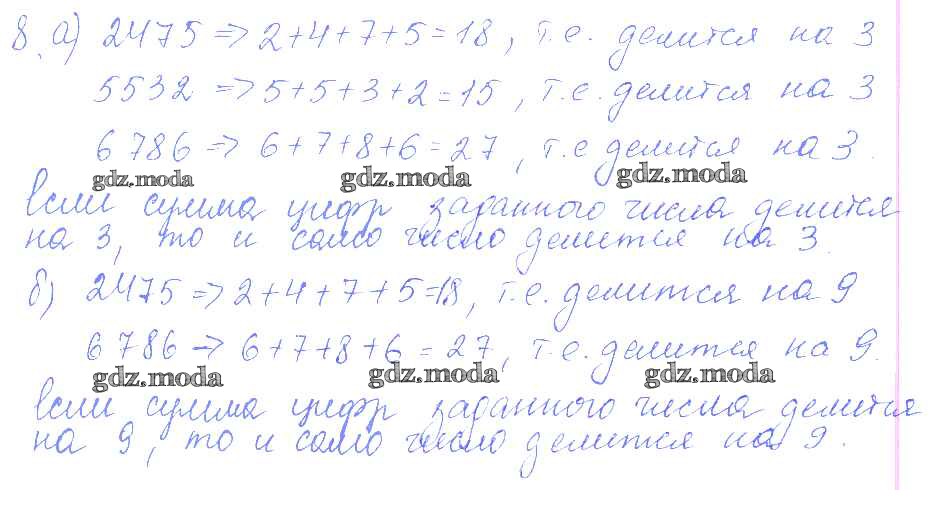 8. а) 2475 => 2+4+7+5=18, т.е. делится на 3
5532 => 5+5+3+2=15, т.е. делится на 3
6 786 => 6+7+8+6=27, т.е делится на 3.
gdz.moda gdz.moda gdz.moda
Если сумма цифр заданного числа делится
на 3, то и само число делится на 3.
б) 2475 => 2+4+7+5=18, т.е. делится на 9
6 786 -> 6+7+8+6=27, т.е. делится на 9.
gdz.moda gdz.moda gdz.moda
Если сумма цифр заданного числа делится
на 9, то и само число делится на 9.